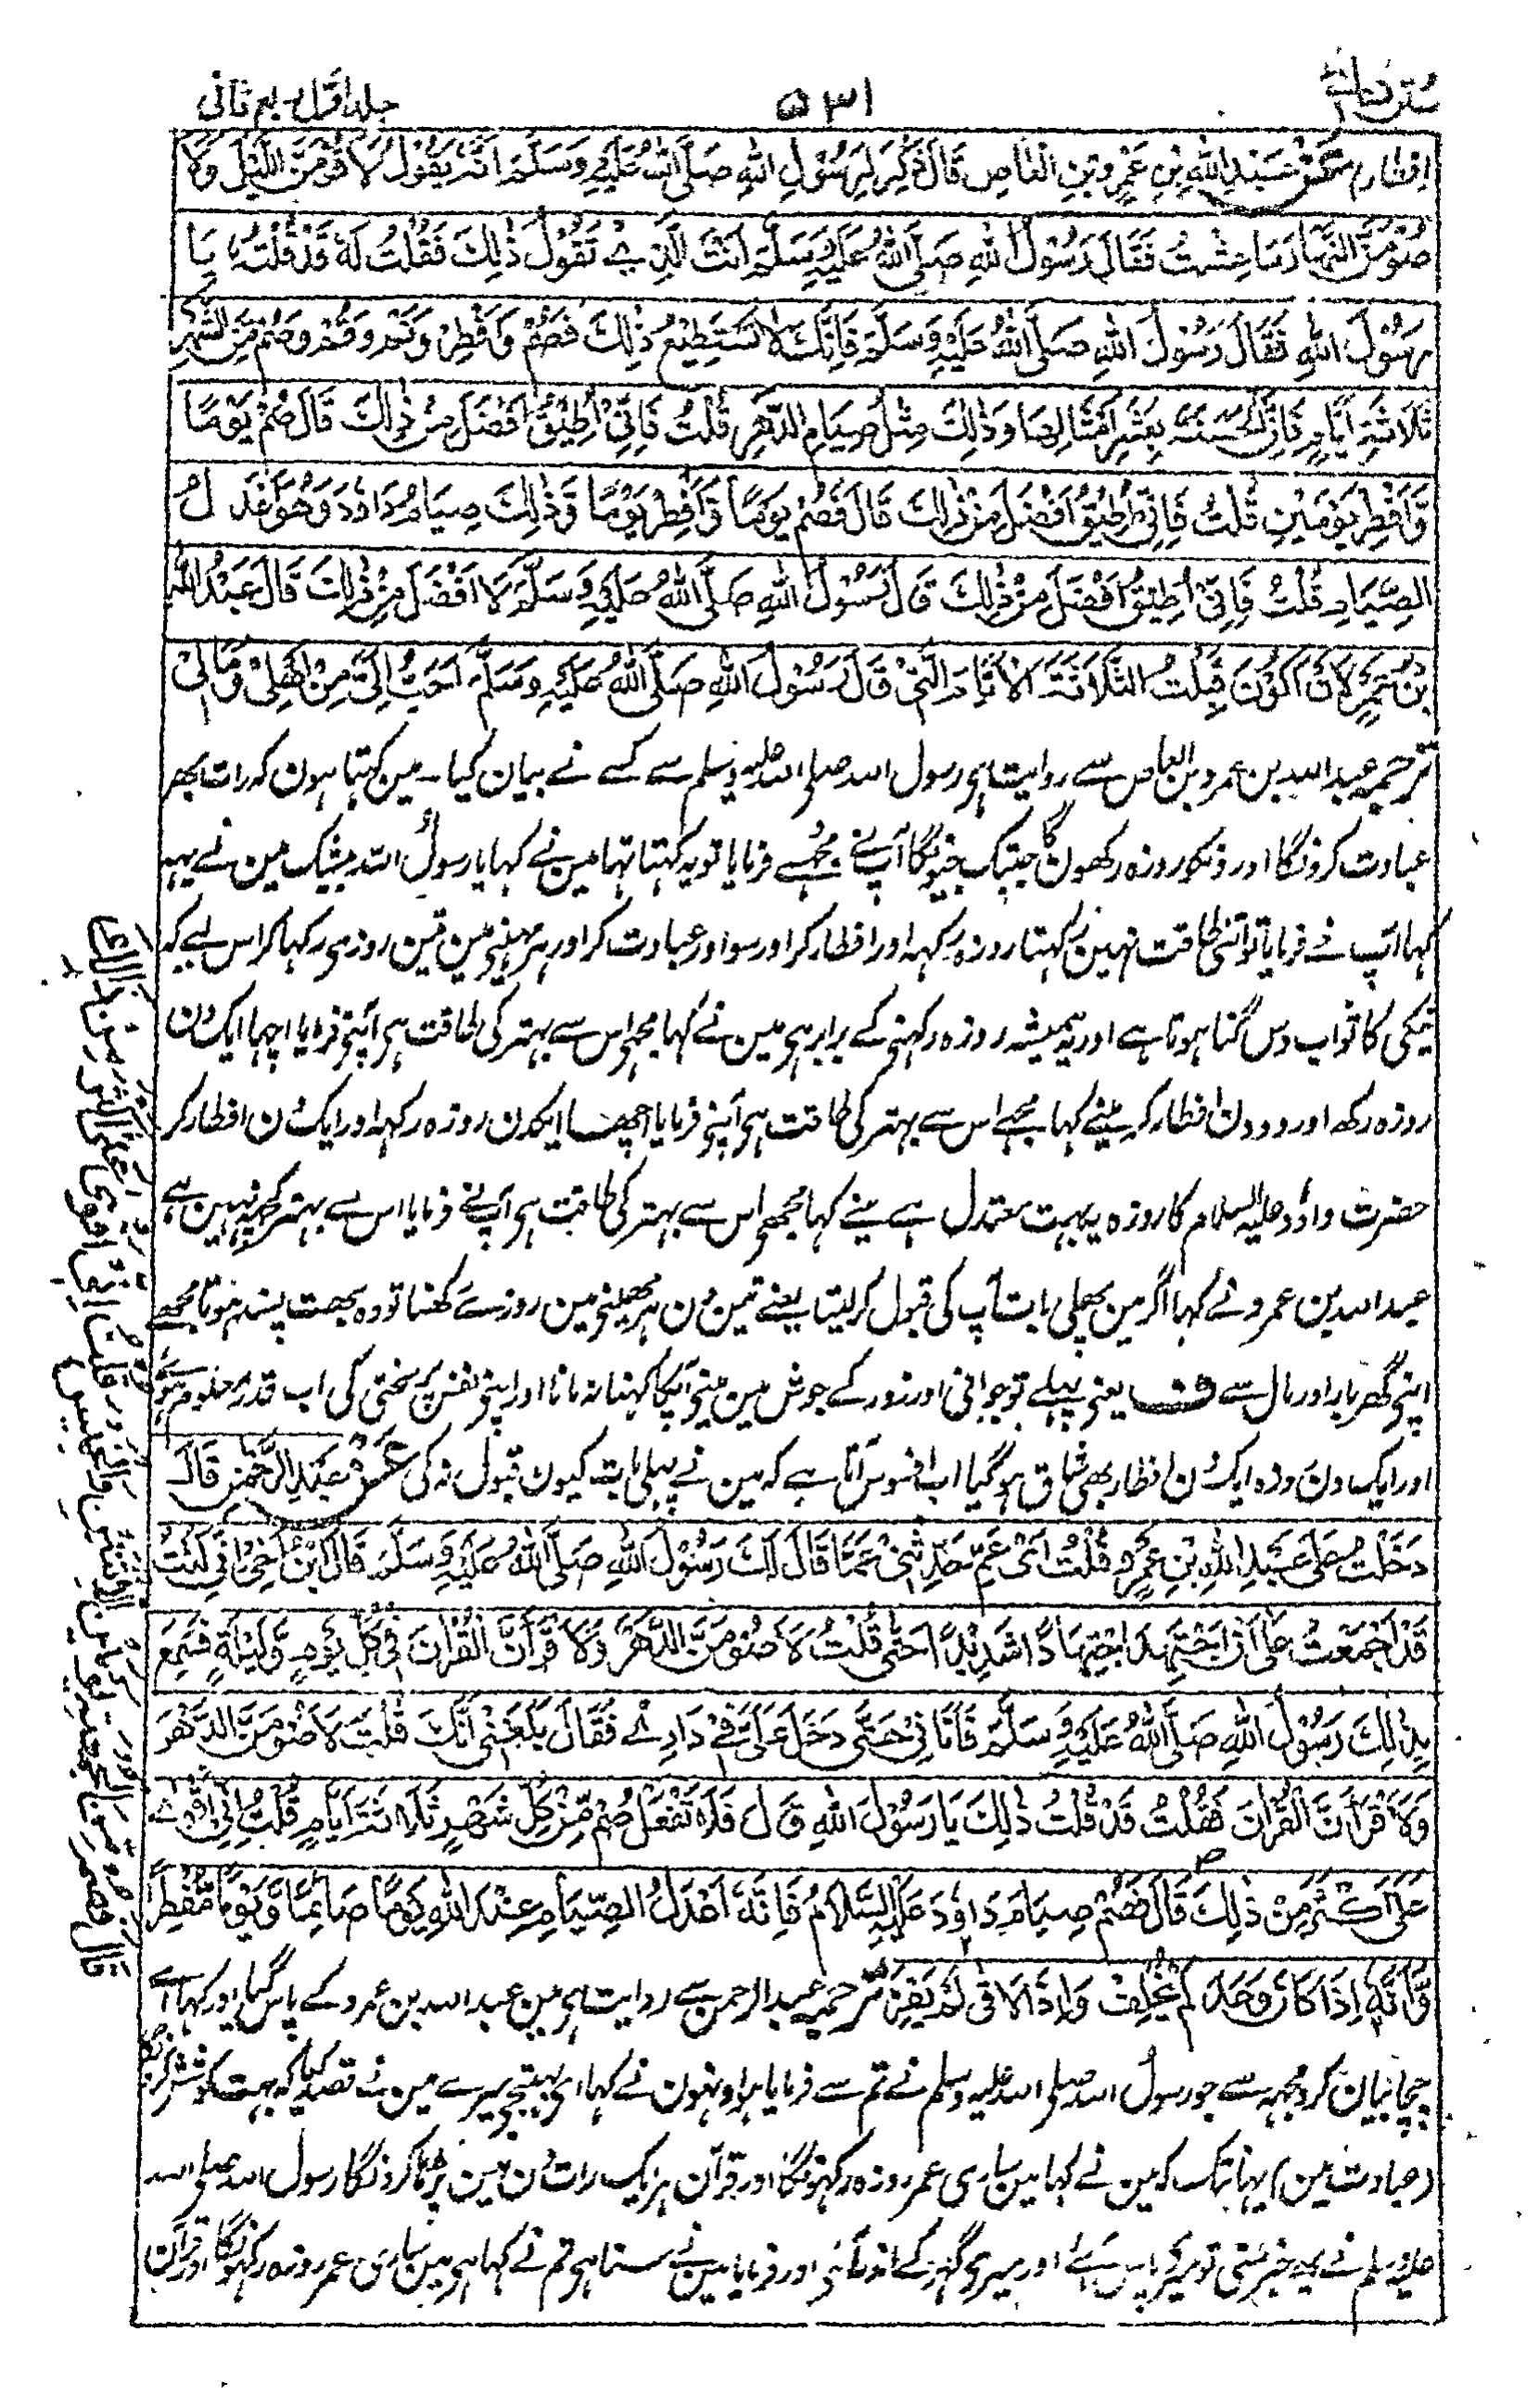 سنن نسائی
۵۳۱
جلد اول ربع ثانی
اِفْطَارِهٖ عَنْ عَبْدِ اللّٰهِ بْنِ عَمْرِو بْنِ الْعَاصِ قَالَ ذُكِرَ لِرَسُوْلِ اللّٰهِ صَلَّى اللّٰهُ عَلَيْهِ وَسَلَّمَ اَنَّهٗ يَقُوْلُ لَاَقُوْمَنَّ اللَّيْلَ وَلَا
صُوْمَنَّ النَّهَارَ مَا عِشْتُ فَقَالَ رَسُوْلُ اللّٰهِ صَلَّى اللّٰهُ عَلَيْهِ وَسَلَّمَ اَنْتَ الَّذِيْ تَقُوْلُ ذٰلِكَ فَقُلْتُ لَهٗ قَدْ قُلْتُهٗ يَا
رَسُوْلَ اللّٰهِ فَقَالَ رَسُوْلُ اللّٰهِ صَلَّى اللّٰهُ عَلَيْهِ وَسَلَّمَ فَاِنَّكَ لَا تَسْتَطِيْعُ ذٰلِكَ فَصُمْ وَاَفْطِرْ وَنَمْ وَقُمْ وَصُمْ مِنَ الشَّهْرِ
ثَلَاثَةَ اَيَّامٍ فَاِنَّ الْحَسَنَةَ بِعَشْرِ اَمْثَالِهَا وَذٰلِكَ مِثْلُ صِيَامِ الدَّهْرِ قُلْتُ فَاِنِّيْ اُطِيْقُ اَفْضَلَ مِنْ ذٰلِكَ قَالَ صُمْ يَوْمًا
وَّاَفْطِرْ يَوْمَيْنِ قُلْتُ فَاِنِّيْ اُطِيْقُ اَفْضَلَ مِنْ ذٰلِكَ قَالَ فَصُمْ يَوْمًا وَّاَفْطِرْ يَوْمًا وَّذٰلِكَ صِيَامُ دَاوٗدَ وَهُوَ اَعْدَلُ
الصِّيَامِ قُلْتُ فَاِنِّيْ اُطِيْقُ اَفْضَلَ مِنْ ذٰلِكَ قَالَ رَسُوْلُ اللّٰهِ صَلَّى اللّٰهُ عَلَيْهِ وَسَلَّمَ لَا اَفْضَلَ مِنْ ذٰلِكَ قَالَ عَبْدُ اللّٰهِ
بْنُ عَمْرٍو لَاَنْ اَكُوْنَ قَبِلْتُ الثَّلَاثَةَ الْاَيَّامَ الَّتِيْ قَالَ رَسُوْلُ اللّٰهِ صَلَّى اللّٰهُ عَلَيْهِ وَسَلَّمَ اَحَبُّ اِلَيَّ مِنْ اَهْلِيْ وَمَالِيْ
ترجمہ عبداللہ بن عمرو بن العاص سے روایت ہی رسول اللہ صلی اللہ علیہ وسلم سے کسے نے بیان کیا۔ مین کہتا ہون کہ رات بھر
عبادت کرونگا اور دنکو روزہ رکھون گا جبتک جیونگا آپنے مجھے فرمایا تو یہ کہتا تہا مین نے کہا یا رسول اللہ بیشک مین نے یہہ
کہا آپ نے فرمایا تو اتنی طاقت نہین رکہتا روزہ رکہہ اور افطار کر اور سو اور عبادت کر اور ہر مہینی مین تین روزی رکہا کر اس لیے کہ
نیکی کا ثواب دس گنا ہوتا ہے اور یہ ہمیشہ روزہ رکہنی کے برابر ہی مین نے کہا مجہی اس سے بہتر کی طاقت ہی آپنی فرمایا اچہا ایک دن
روزہ رکھ اور دو دن افطار کر مینے کہا مجہے اس سے بہتر کی طاقت ہی آپنی فرمایا اچھا ایکدن روزہ رکہہ اور ایک دن افطار کر
حضرت داؤد علیہ السلام کا روزہ یہ بہت معتدل ہے مینے کہا مجھی اس سے بہتر کی طاقت ہی آپنے فرمایا اس سے بہتر کچہہ نہین ہے
عبداللہ بن عمرو نے کہا اگر مین پہلی بات آپ کی قبول کر لیتا یعنے تین دن ہر مہینی مین روزے رکھنا تو وہ بہت پسند ہوتا مجھے
اپنی گھر بار اور مال سے ف یعنی پہلے تو جوانی اور زور کے جوش مین مینی آپکا کہنا نہ مانا اور اپنی نفس پر سختی کی اب قدر معلوم ہوئے
اور ایک دن روزہ ایک دن افطار بھی شاق ہو گیا اب افسوس آتا ہے کہ مین نے پہلی بات کیون قبول نہ کی عَنْ عَبْدِ الرَّحْمٰنِ قَالَ
دَخَلْتُ عَلٰى عَبْدِ اللّٰهِ بْنِ عَمْرٍو قُلْتُ اَيْ عَمِّ حَدِّثْنِيْ عَمَّا قَالَ لَكَ رَسُوْلُ اللّٰهِ صَلَّى اللّٰهُ عَلَيْهِ وَسَلَّمَ قَالَ يَا ابْنَ اَخِيْ اِنِّيْ كُنْتُ
قَدْ اَجْمَعْتُ عَلٰى اَنْ اَجْتَهِدَ اجْتِهَادًا شَدِيْدًا حَتّٰى قُلْتُ لَاَصُوْمَنَّ الدَّهْرَ وَلَاَقْرَأَنَّ الْقُرْاٰنَ فِيْ كُلِّ يَوْمٍ وَّلَيْلَةٍ فَسَمِعَ
بِذٰلِكَ رَسُوْلُ اللّٰهِ صَلَّى اللّٰهُ عَلَيْهِ وَسَلَّمَ فَاَتَانِيْ حَتّٰى دَخَلَ عَلَيَّ فِيْ دَارِيْ فَقَالَ بَلَغَنِيْ اَنَّكَ قُلْتَ لَاَصُوْمَنَّ الدَّهْرَ
وَلَاَقْرَأَنَّ الْقُرْاٰنَ فَقُلْتُ قَدْ قُلْتُ ذٰلِكَ يَا رَسُوْلَ اللّٰهِ قَالَ فَلَا تَفْعَلْ صُمْ مِنْ كُلِّ شَهْرٍ ثَلَاثَةَ اَيَّامٍ قُلْتُ اِنِّيْ اَقْوٰى
عَلٰى اَكْثَرَ مِنْ ذٰلِكَ قَالَ فَصُمْ صِيَامَ دَاوٗدَ عَلَيْهِ السَّلَامُ فَاِنَّهٗ اَعْدَلُ الصِّيَامِ عِنْدَ اللّٰهِ يَوْمًا صَائِمًا وَّيَوْمًا مُّفْطِرًا
وَّاَنَّهٗ اِذَا كَانَ وَعَدَ لَمْ يُخْلِفْ وَاِذَا لَاقٰى لَمْ يَفِرَّ ترجمہ عبدالرحمن سے روایت ہی مین عبداللہ بن عمرو کے پاس گیا اور کہا اے
چچا بیان کرو مجہہ سے جو رسول اللہ صلی اللہ علیہ وسلم نے تم سے فرمایا ہو اونہون نے کہا ای بہتیجی میرے مین نے قصد کیا کہ بہت کوشش کرونگا
(عبادت مین) یہانتک کہ مین نے کہا مین ساری عمر روزہ رکہونگا اور قرآن ہر ایک رات دن مین پڑھا کرونگا رسول اللہ صلی اللہ
علیہ وسلم نے یہ خبر سنی تو میرے پاس آئے اور میری گہر کے اندر آئی اور فرمایا مین نے سنا ہی تم نے کہا ہی مین ساری عمر روزہ رکہونگا اور قرآن